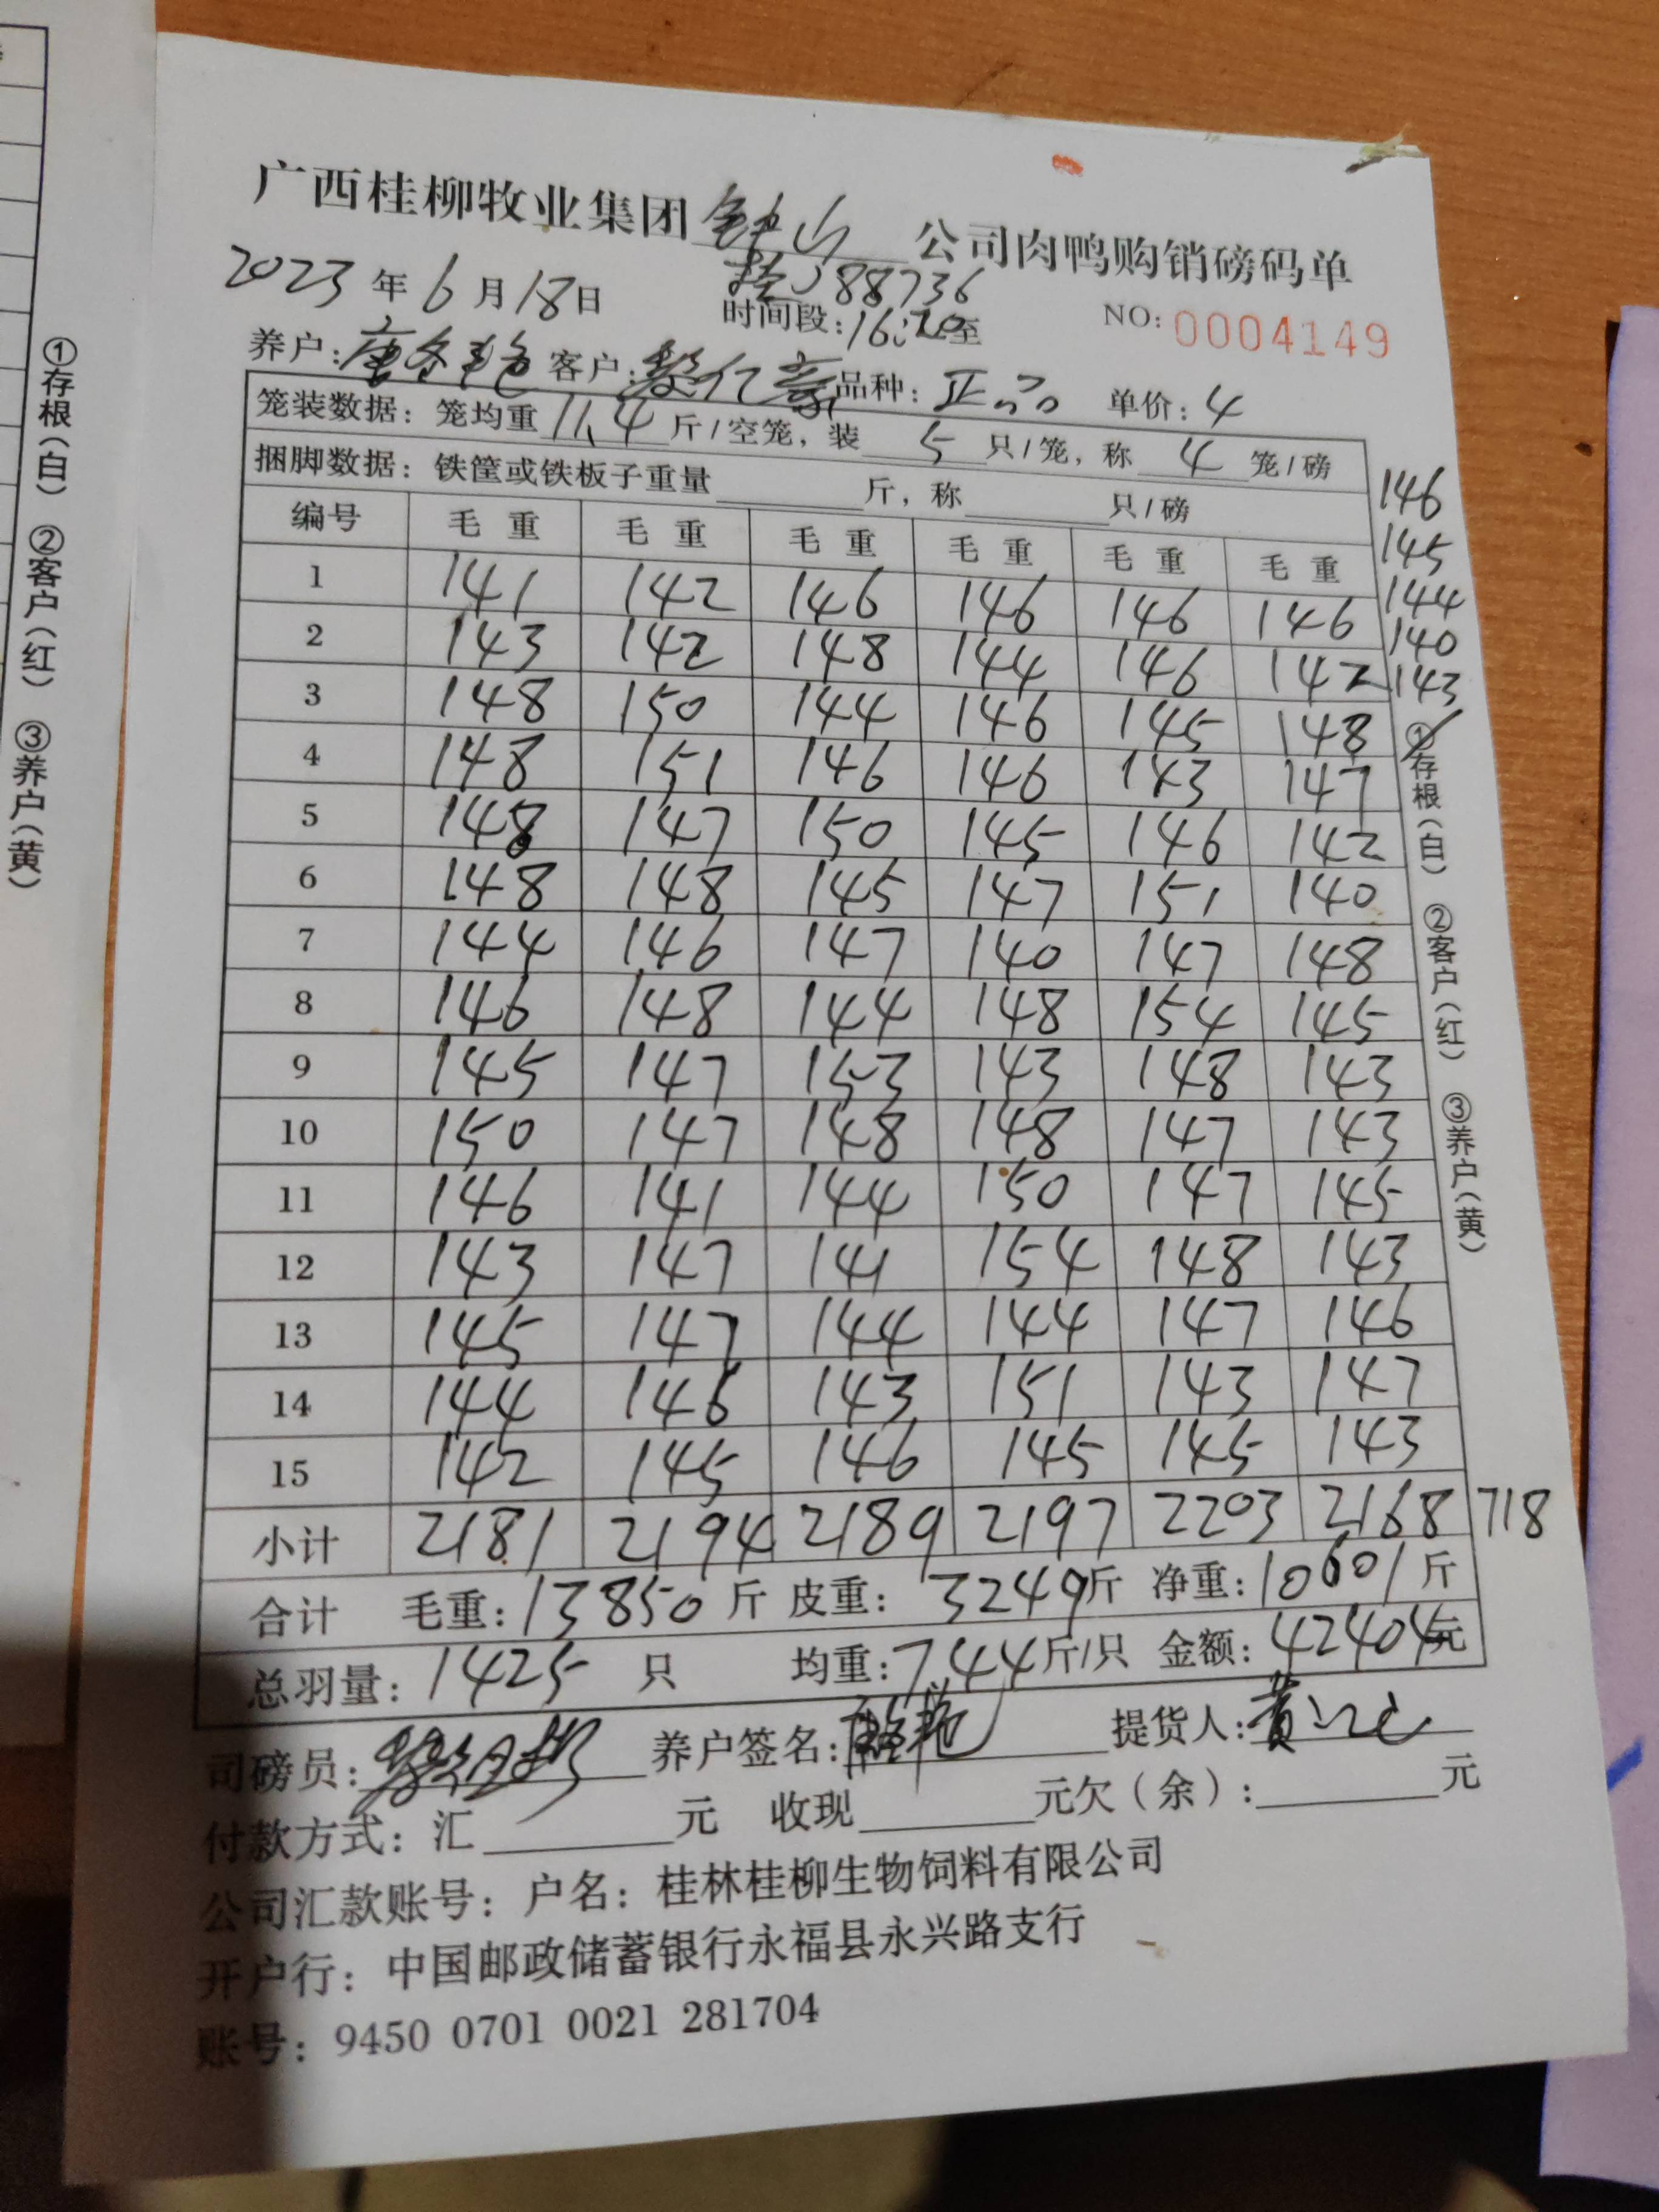 广西桂柳牧业集团 钟山 公司肉鸭购销磅码单
2023年6月18日 桂J88736
时间段:16:20至 NO:0004149
养户:唐冬艳 客户:黎亿豪 品种:正品 单价:4
笼装数据:笼均重11.4斤/空笼,装5只/笼,称4笼/磅
捆脚数据:铁筐或铁板子重量 斤,称 只/磅
编号 毛重 毛重 毛重 毛重 毛重 毛重
1 141 142 146 146 146 146 146
2 143 142 148 144 146 142 145
3 148 150 144 146 145 148 144
4 148 151 146 146 143 147 140
5 148 147 150 145 146 142 143
6 148 148 145 147 151 140
7 144 146 147 140 147 148
8 146 148 144 148 154 145
9 145 147 153 143 148 143
10 150 147 148 148 147 143
11 146 141 144 150 147 145
12 143 147 141 154 148 143
13 145 147 144 144 147 146
14 144 146 143 151 143 147
15 142 145 146 145 145 143
小计 2181 2194 2189 2197 2203 2168 718
合计 毛重:13850斤 皮重:3249斤 净重:10601斤
总羽量:1425只 均重:7.44斤/只 金额:42404元
司磅员: 养户签名: 提货人:黄
付款方式:汇 元 收现 元欠(余): 元
公司汇款账号:户名:桂林桂柳生物饲料有限公司
开户行:中国邮政储蓄银行永福县永兴路支行
账号:9450 0701 0021 281704
①存根(白) ②客户(红) ③养户(黄)
①存根(白) ②客户(红) ③养户(黄)